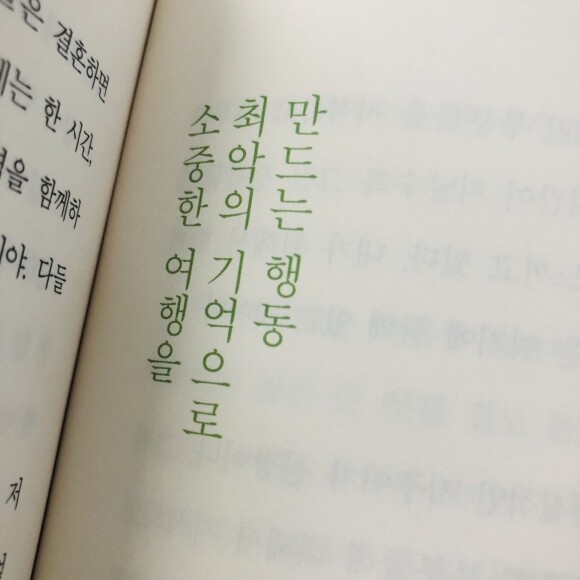 은 결혼하면
는 한 시간,
을 함께하
야. 다들
저
소중한 여행을
최악의 기억으로
만드는 행동